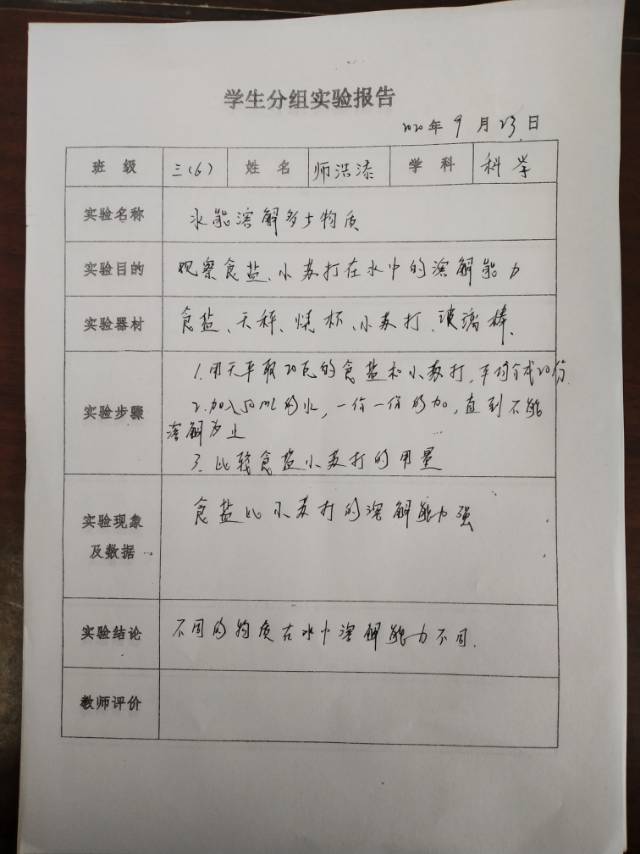 学生分组实验报告
2020年9月23日
班级 三(6) 姓名 师浩添 学科 科学
实验名称 水能溶解多少物质
实验目的 观察食盐、小苏打在水中的溶解能力
实验器材 食盐、天秤、烧杯、小苏打、玻璃棒、
实验步骤 1.用天平取20克的食盐和小苏打,平均分成20份
2.加入50ml的水,一份一份的加,直到不能
溶解为止
3.比较食盐小苏打的用量
实验现象及数据 食盐比小苏打的溶解能力强
实验结论 不同的物质在水中溶解能力不同.
教师评价